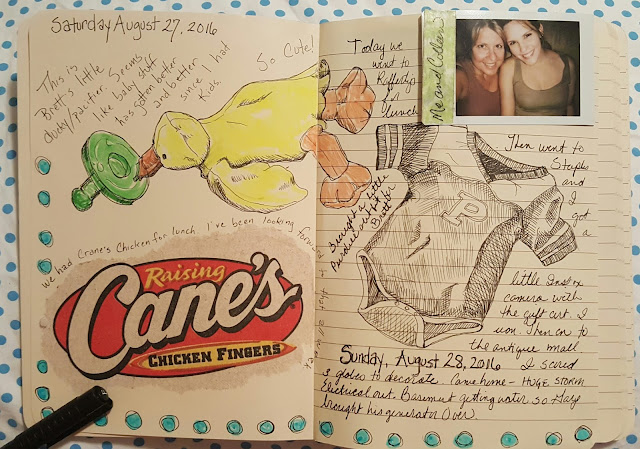 Saturday August 27, 2016
This is
Brett's little
ducky/pacifier. Seems
like baby stuff
has gotten better
and better
since I had
Kids.
So Cute!
We had Crane's Chicken for lunch I've been looking forward
to
Raising
Cane's
CHICKEN FINGERS
Today we
went to
for
lunch.
Me and Colleen
Then went to
Staples
and
I
got
a
little Instax
camera with
the gift cert I
won. Then on to
the antique mall
I scored
3 globes to decorate. Came home - HUGE STORM
Electrical out. Basement getting water so Gary
brought his generator over.
I bought a little
Baseball outfit for
Brett
P
Sunday, August 28, 2016